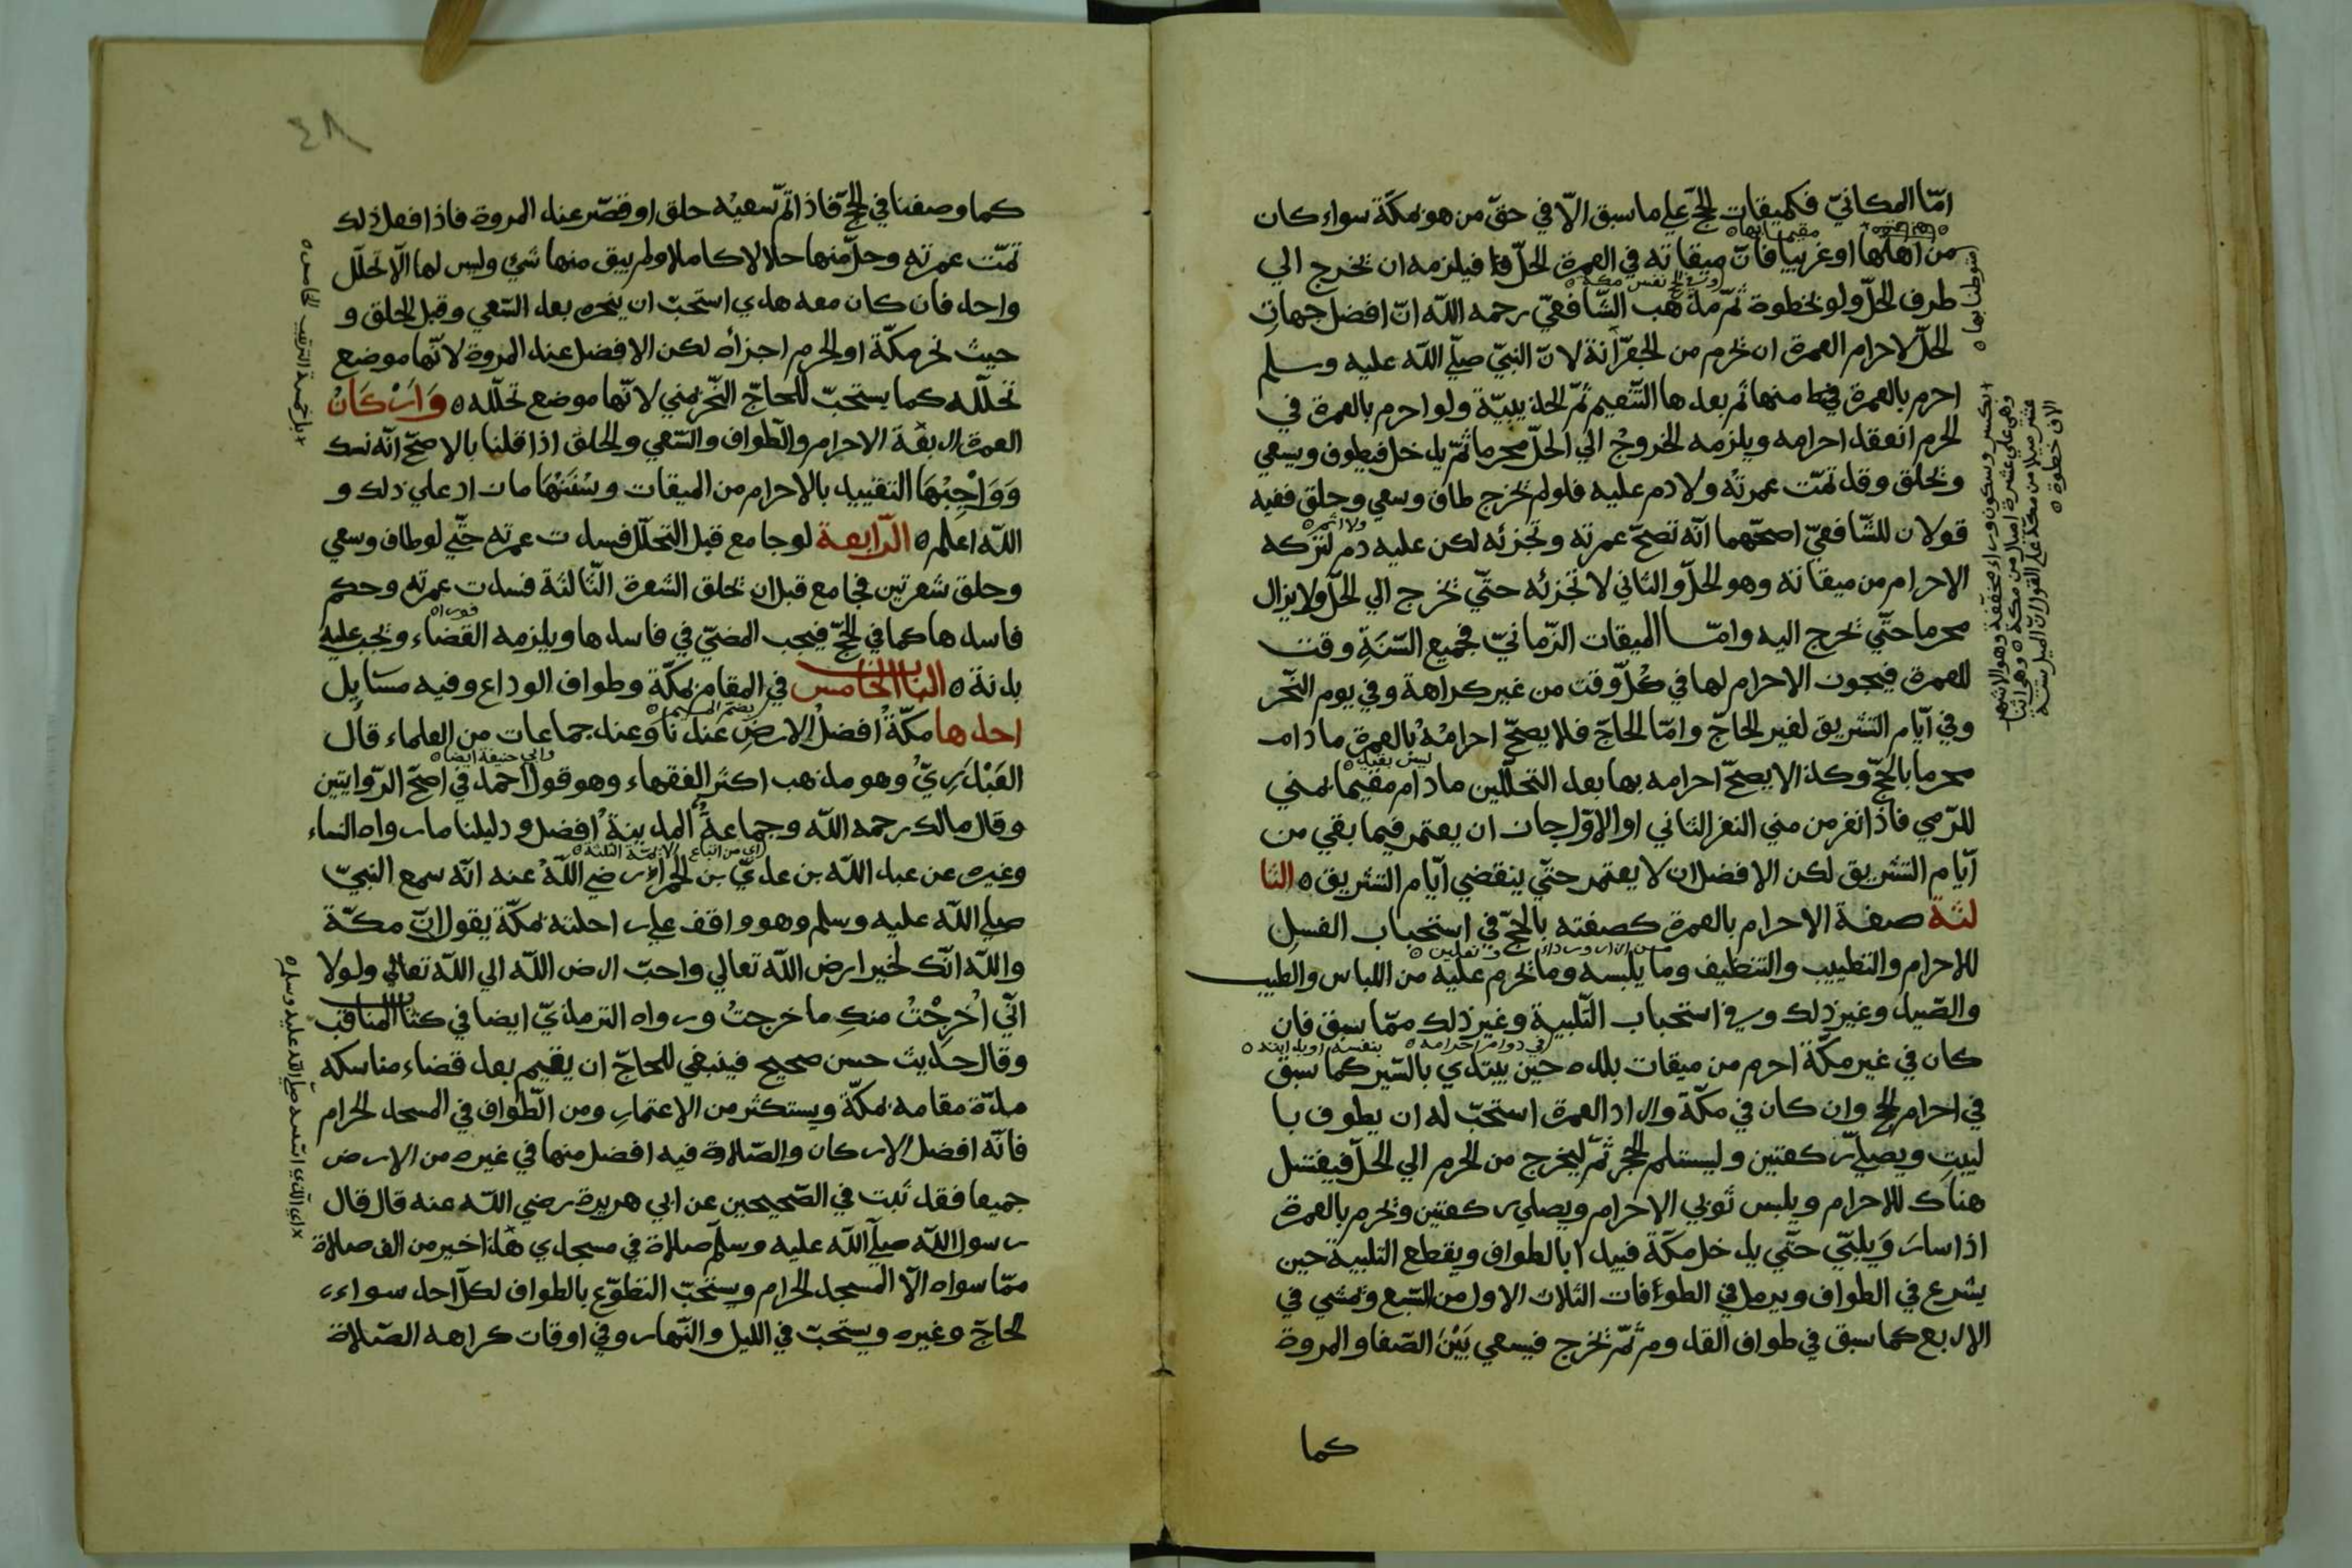 امّا المكانيّ فكميقات الحجّ علي ما سبق الّا في حقّ من هو بمكّة سواء كان
من اهلها او غريبا فانّ ميقاته في العمرة الحلّ فيلزمه ان يخرج الي
طرف الحلّ ولو بخطوة ثمّ مذهب الشّافعيّ رحمه الله انّ افضل جهات
الحلّ لاحرام العمرة ان يحرم من الجعرّانة لانّ النبيّ صلّي الله عليه وسلم
احرم بالعمرة منها ثم بعدها التّنعيم ثمّ الحديبيّة ولو احرم بالعمرة في
الحرم انعقد احرامه ويلزمه الخروج الي الحلّ محرما ثمّ يدخل فيطوف ويسعي
ويحلق وقد تمّت عمرته ولا دم عليه فلو لم يخرج طاف وسعي وحلق ففيه
قولان للشّافعيّ اصحّهما انّه تصحّ عمرته وتجزئه لكن عليه دم لتركه
الاحرام من ميقاته وهو الحلّ والثاني لا تجزئه حتّي يخرج الي الحلّ ولا يزال
محرما حتّي يخرج اليه وامّا الميقات الزّمانيّ فجميع السّنة وقت
للعمرة فيجوز الاحرام لها في كلّ وقت من غير كراهة وفي يوم النّحر
وفي ايّام التشريق لغير الحاجّ وامّا الحاجّ فلا يصحّ احرامه بالعمرة مادام
محرما بالحجّ وكذا لا يصحّ احرامه بها بعد التحلّلين مادام مقيما بمني
للرّمي فاذا نفر من مني النفر الثاني او الاوّل جاز ان يعتمر فيما بقي من
ايّام التشريق لكن الافضل ان لا يعتمر حتّي ينقضي ايّام التشريق ه الثا
لثة صفة الاحرام بالعمرة كصفته بالحجّ في استحباب الغسل
للاحرام والتطييب والتنظيف وما يلبسه وما يحرم عليه من اللباس والطيب
والصّيد وغير ذلك وفي استحباب التّلبية وغير ذلك ممّا سبق فان
كان في غير مكّة احرم من ميقات بلده حين يبتدي بالسّير كما سبق
في احرام الحج وان كان في مكّة واراد العمرة استحبّ له ان يطوف با
لبيت ويصلّي ركعتين وليستلم الحجر ثمّ ليخرج من الحرم الي الحلّ فيغتسل
هناك للاحرام ويلبس ثوبي الاحرام ويصلي ركعتين ويحرم بالعمرة
اذا سار ويلبّي حتّي يدخل مكّة فيبدا بالطواف ويقطع التلبية حين
يشرع في الطواف ويرمل في الطوافات الثلاث الاول من السّبع ويمشي في
الاربع كما سبق في طواف القدوم ثمّ يخرج فيسعي بَيْنَ الصّفا والمروة
كما
استوطنا بها ه
مقيما بها ه
وفي الحج نفس مكة ه
+ بكسر وسكون وراء مخفّفة وهو الاشهر
وهي علي عشرة اميال من مكّة ه وهو اثنا
عشر ميلا من مكّة علي القول انّ الميل ستة
الاف خطوة ه
ولا اثم ه
من ازار ورداء ونعلين ه
في دوام احرامه ه
٤٨
كما وصفنا في الحجّ فاذا تمّ سعيه حلق او قصّر عند المروة فاذا فعل ذلك
تمّت عمرته وحلّ منها حلالا كاملا ولم يبق منها شي وليس لها الّا تحلّل
واحد فان كان معه هدي استحبّ ان ينحره بعد السّعي وقبل الحلق و
حيث نحر مكّة او الحرم اجزأه لكن الافضل عند المروة لانّها موضع
تحلّله كما يستحبّ للحاجّ النّحر بمني لانّها موضع تحلّله ه وَاَرْكَانُ
العمرة اربعة الاحرام والطّواف والسّعي والحلق اذا قلنا بالاصحّ انّه نسك
وَوَاجِبُهَا التقييد بالاحرام من الميقات وسُنَنُهَا ما زاد علي ذلك و
الله اعلم ه الرّابعة لو جامع قبل التحلّل فسدت عمرته حتّي لو طاف وسعي
وحلق شعرتين فجامع قبل ان يحلق الشعرة الثّالثة فسدت عمرته وحكم
فاسدها كما في الحجّ فيجب المضيّ في فاسدها ويلزمه القضاء ويجب عليه
بدنة ه الباب الخامس في المقام بمكّة وطواف الوداع وفيه مسايل
احدها مكّة افضل الارض عندنا وعند جماعات من العلماء قال
العَبْدَرِيّ وهو مذهب اكثر الفقهاء وهو قول احمد في اصحّ الرّوايتين
وقال مالك رحمه الله وجماعة المدينة افضل ودليلنا ما رواه النساء
وغيره عن عبد الله بن عديّ بن الحمراء رضي الله عنه انّه سمع النبيّ
صلي الله عليه وسلم وهو واقف علي راحلته بمكّة يقول انّ مكّة
والله انّك لخير ارض الله تعالي واحبّ ارض الله الي الله تعالي ولولا
انّي اُخْرِجْتُ منكِ ما خرجتُ ورواه الترمذيّ ايضا في كتاب المناقب
وقال حديث حسن صحيح فينبغي للحاجّ ان يقيم بعد قضاء مناسكه
مدّة مقامه بمكّة ويستكثر من الاعتمار ومن الطّواف في المسجد الحرام
فانّه افضل الاركان والصّلاة فيه افضل منها في غيره من الارض
جميعا فقد ثبت في الصّحيحين عن ابي هريرة رضي الله عنه قال قال
رسول الله صلّي الله عليه وسلّم صلاة في مسجدي هذا خير من الف صلاة
ممّا سواه الّا المسجد الحرام ويستحبّ التطوّع بالطواف لكلّ احد سواء
الحاجّ وغيره ويستحبّ في الليل والنّهار وفي اوقات كراهة الصّلاة
فورا ه
بضمّ الميم ه
وابي حنيفة ايضا ه
اي من اتباع الائمّة الثلثة ه
اي الذي اسّسه صلّي الله عليه وسلم ه